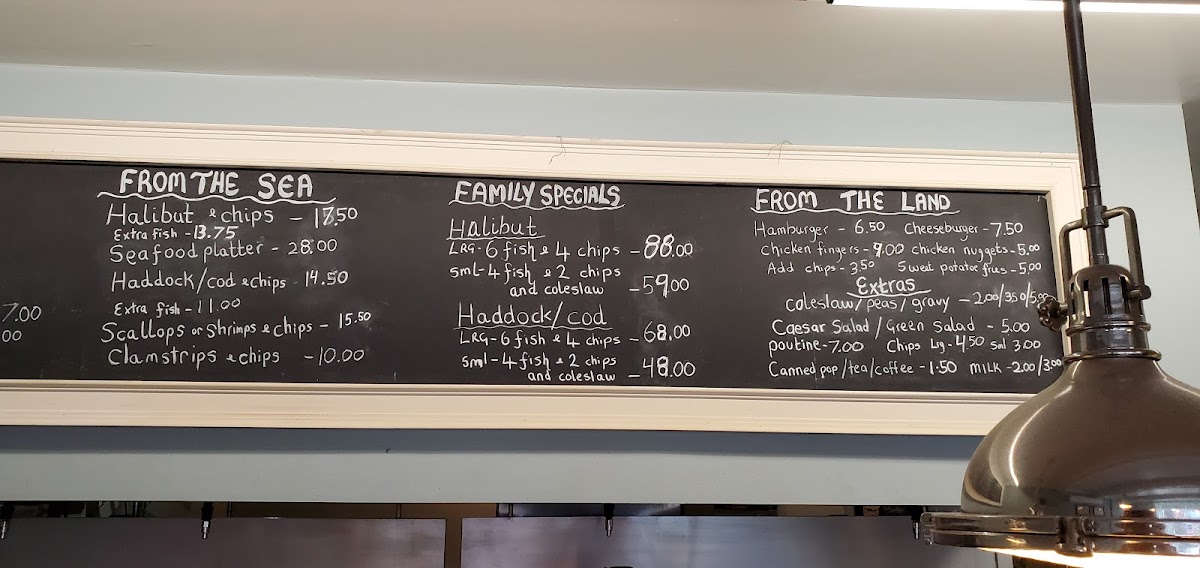 7.00
00
FROM THE SEA
Halibut & chips - 17.50
Extra fish - 13.75
Seafood platter - 28.00
Haddock/cod & chips - 14.50
Extra fish - 11.00
Scallops or shrimps & chips - 15.50
Clamstrips & chips - 10.00
FAMILY SPECIALS
Halibut
LRG - 6 fish & 4 chips - 88.00
sml - 4 fish & 2 chips
and coleslaw - 59.00
Haddock/cod
LRG - 6 fish & 4 chips - 68.00
sml - 4 fish & 2 chips
and coleslaw - 48.00
FROM THE LAND
Hamburger - 6.50 Cheeseburger - 7.50
chicken fingers - 9.00 chicken nuggets - 5.00
Add chips - 3.50 Sweet potatoe fries - 5.00
Extras
coleslaw/peas/gravy - 2.00/3.50/5.00
Caesar Salad / Green Salad - 5.00
poutine - 7.00 Chips Lg - 4.50 sml 3.00
Canned pop/tea/coffee - 1.50 MILK - 2.00/3.00